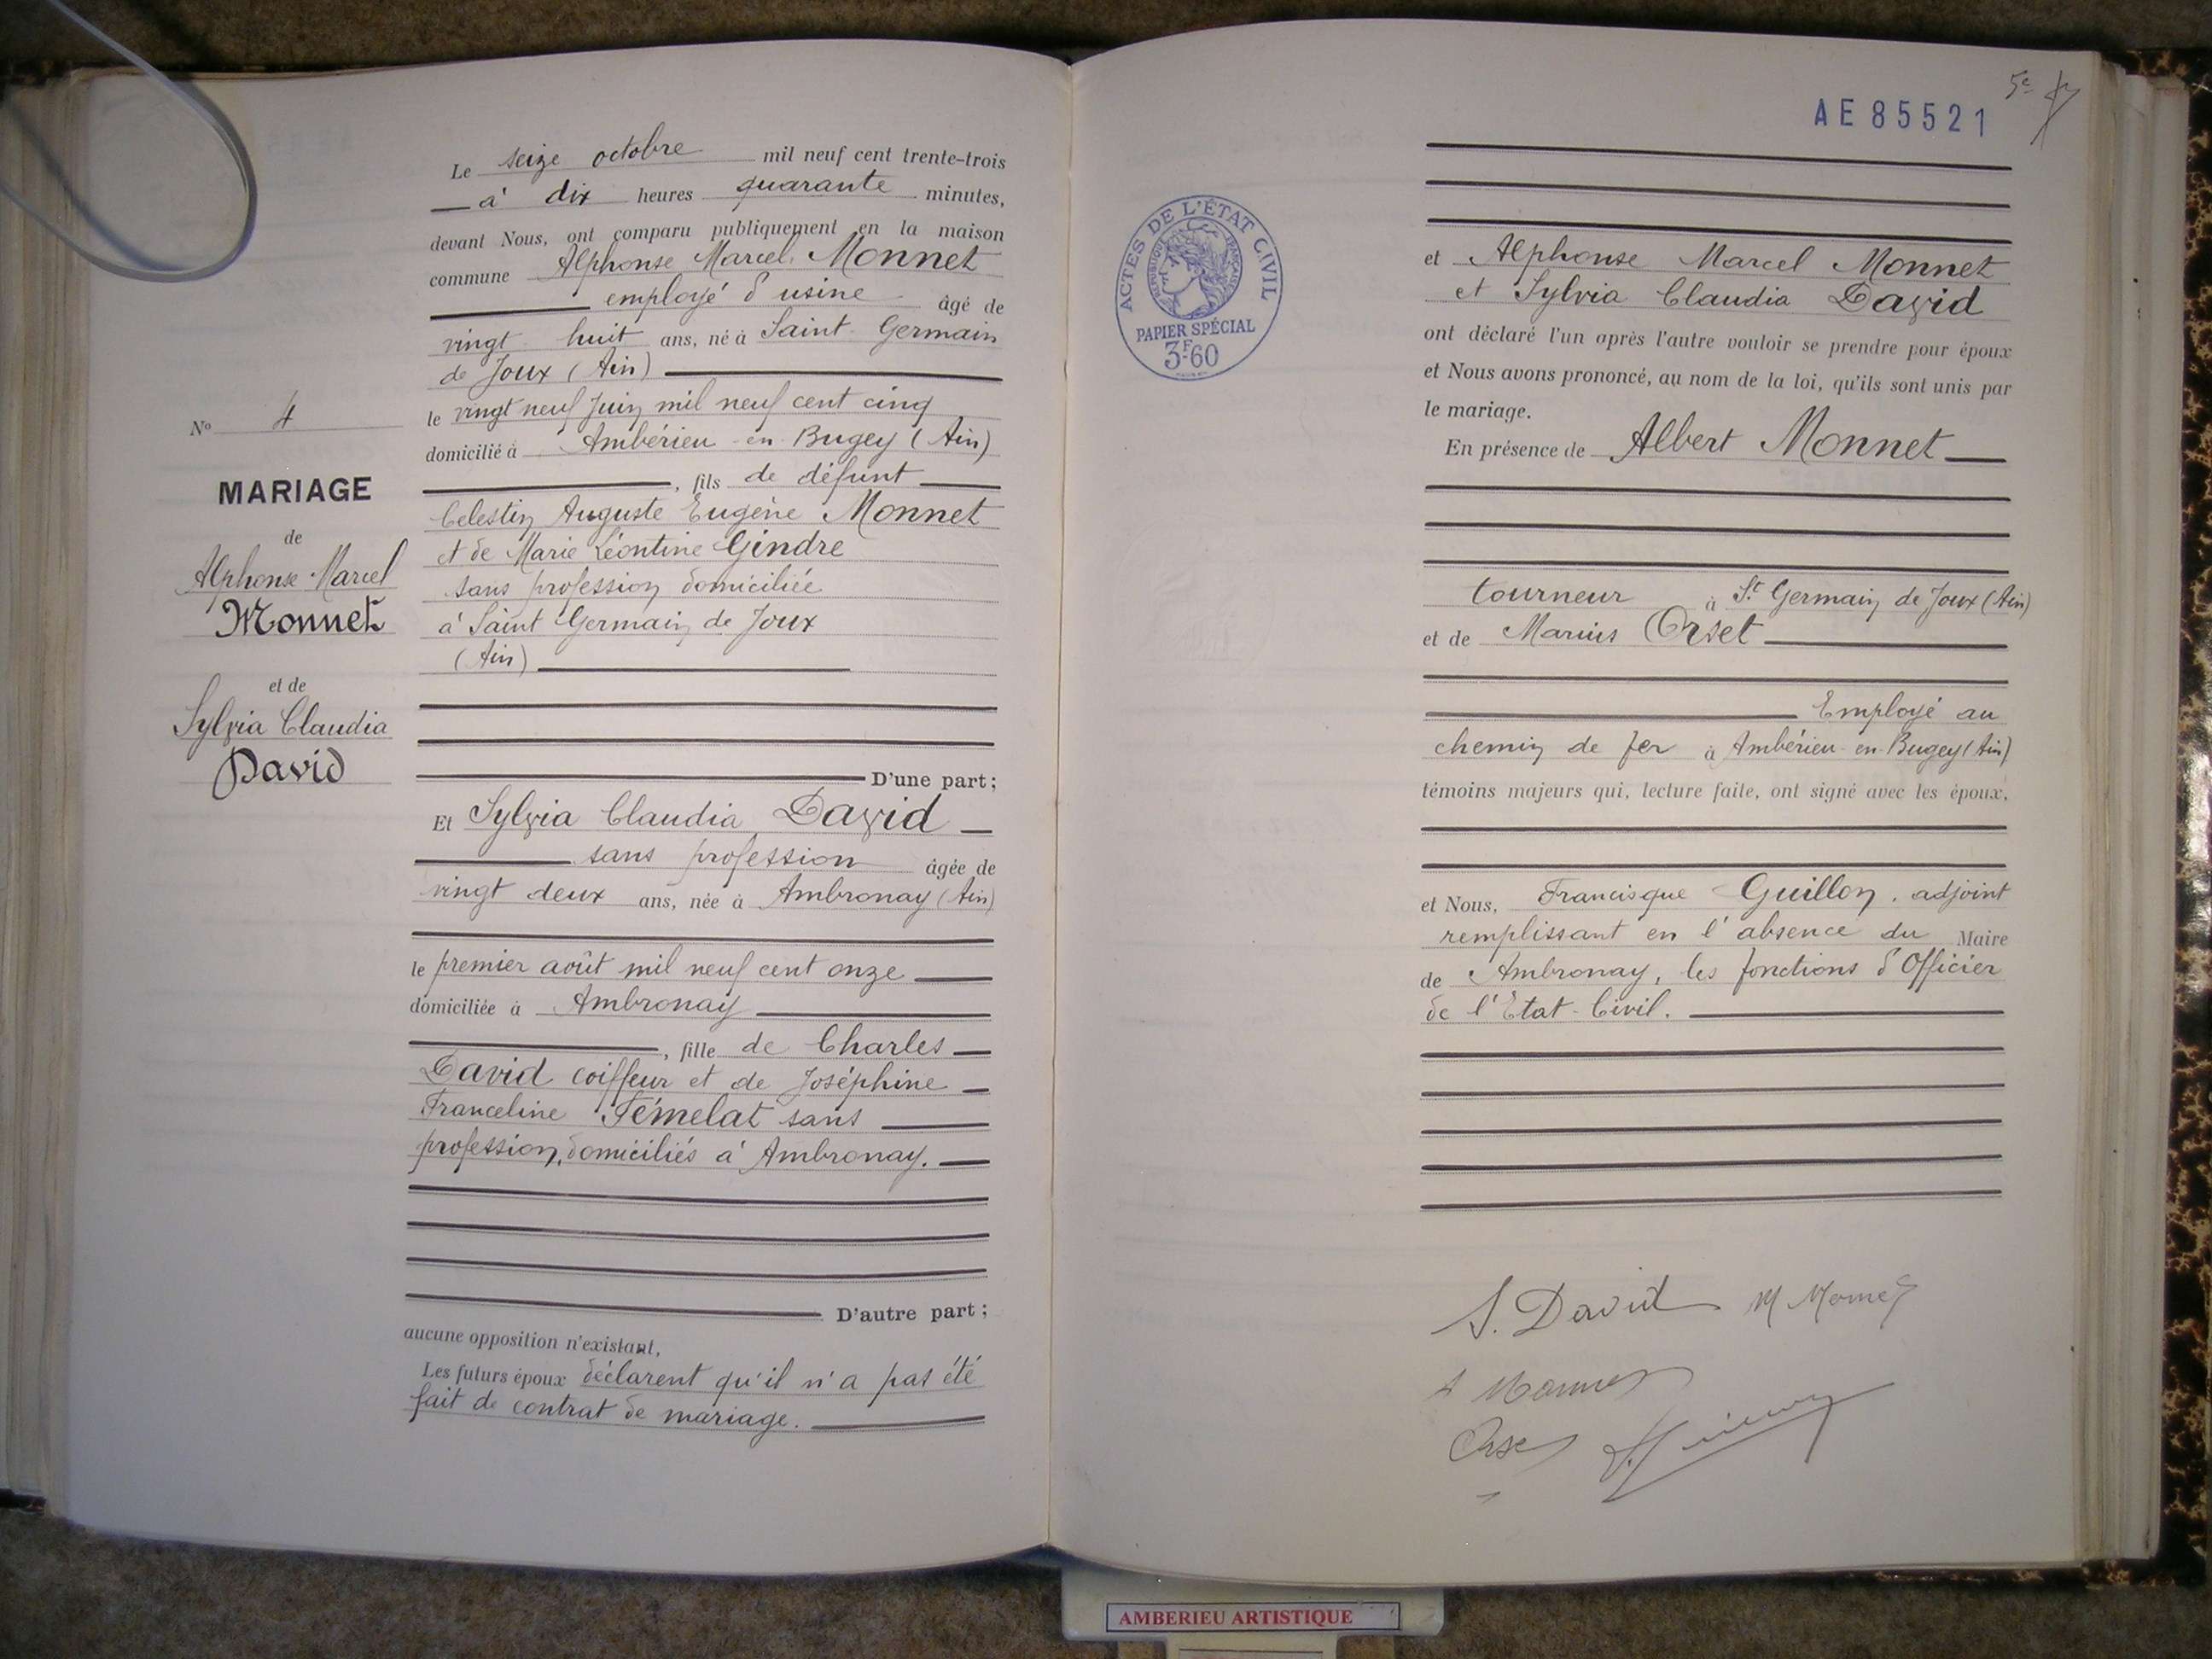 Le seize octobre mil neuf cent trente-trois
à dix heures quarante minutes,
devant Nous, ont comparu publiquement en la maison
commune Alphonse Marcel Monnet
employé d'usine âgé de
vingt huit ans, né à Saint-Germain
de Joux (Ain)
le vingt neuf Juin mil neuf cent cinq
domicilié à Ambérieu-en-Bugey (Ain)
, fils de défunt
Celestin Auguste Eugène Monnet
et de Marie Léontine Gindre
sans profession domiciliée
à Saint Germain de Joux
(Ain)
D'une part;
Et Sylvia Claudia David
sans profession âgée de
vingt deux ans, née à Ambronay (Ain)
le premier août mil neuf cent onze
domiciliée à Ambronay
, fille de Charles
David coiffeur et de Joséphine
Franceline Fémelat sans
profession, domiciliés à Ambronay.
D'autre part;
aucune opposition n'existant,
Les futurs époux déclarent qu'il n'a pas été
fait de contrat de mariage.
No 4
MARIAGE
de
Alphonse Marcel
Monnet
et de
Sylvia Claudia
David
5e
AE 85521
ACTES DE L'ÉTAT CIVIL
RÉPUBLIQUE FRANÇAISE
PAPIER SPÉCIAL
3F.60
et Alphonse Marcel Monnet
et Sylvia Claudia David
ont déclaré l'un après l'autre vouloir se prendre pour époux
et Nous avons prononcé, au nom de la loi, qu'ils sont unis par
le mariage.
En présence de Albert Monnet
tourneur à St Germain de Joux (Ain)
et de Marius Orset
Employé au
chemin de fer à Ambérieu-en-Bugey (Ain)
témoins majeurs qui, lecture faite, ont signé avec les époux,
et Nous, Francisque Guillon, adjoint
remplissant en l'absence du Maire
de Ambronay, les fonctions d'Officier
de l'Etat-Civil.
S. David M Monnet
A Monnet
Orset
AMBERIEU ARTISTIQUE